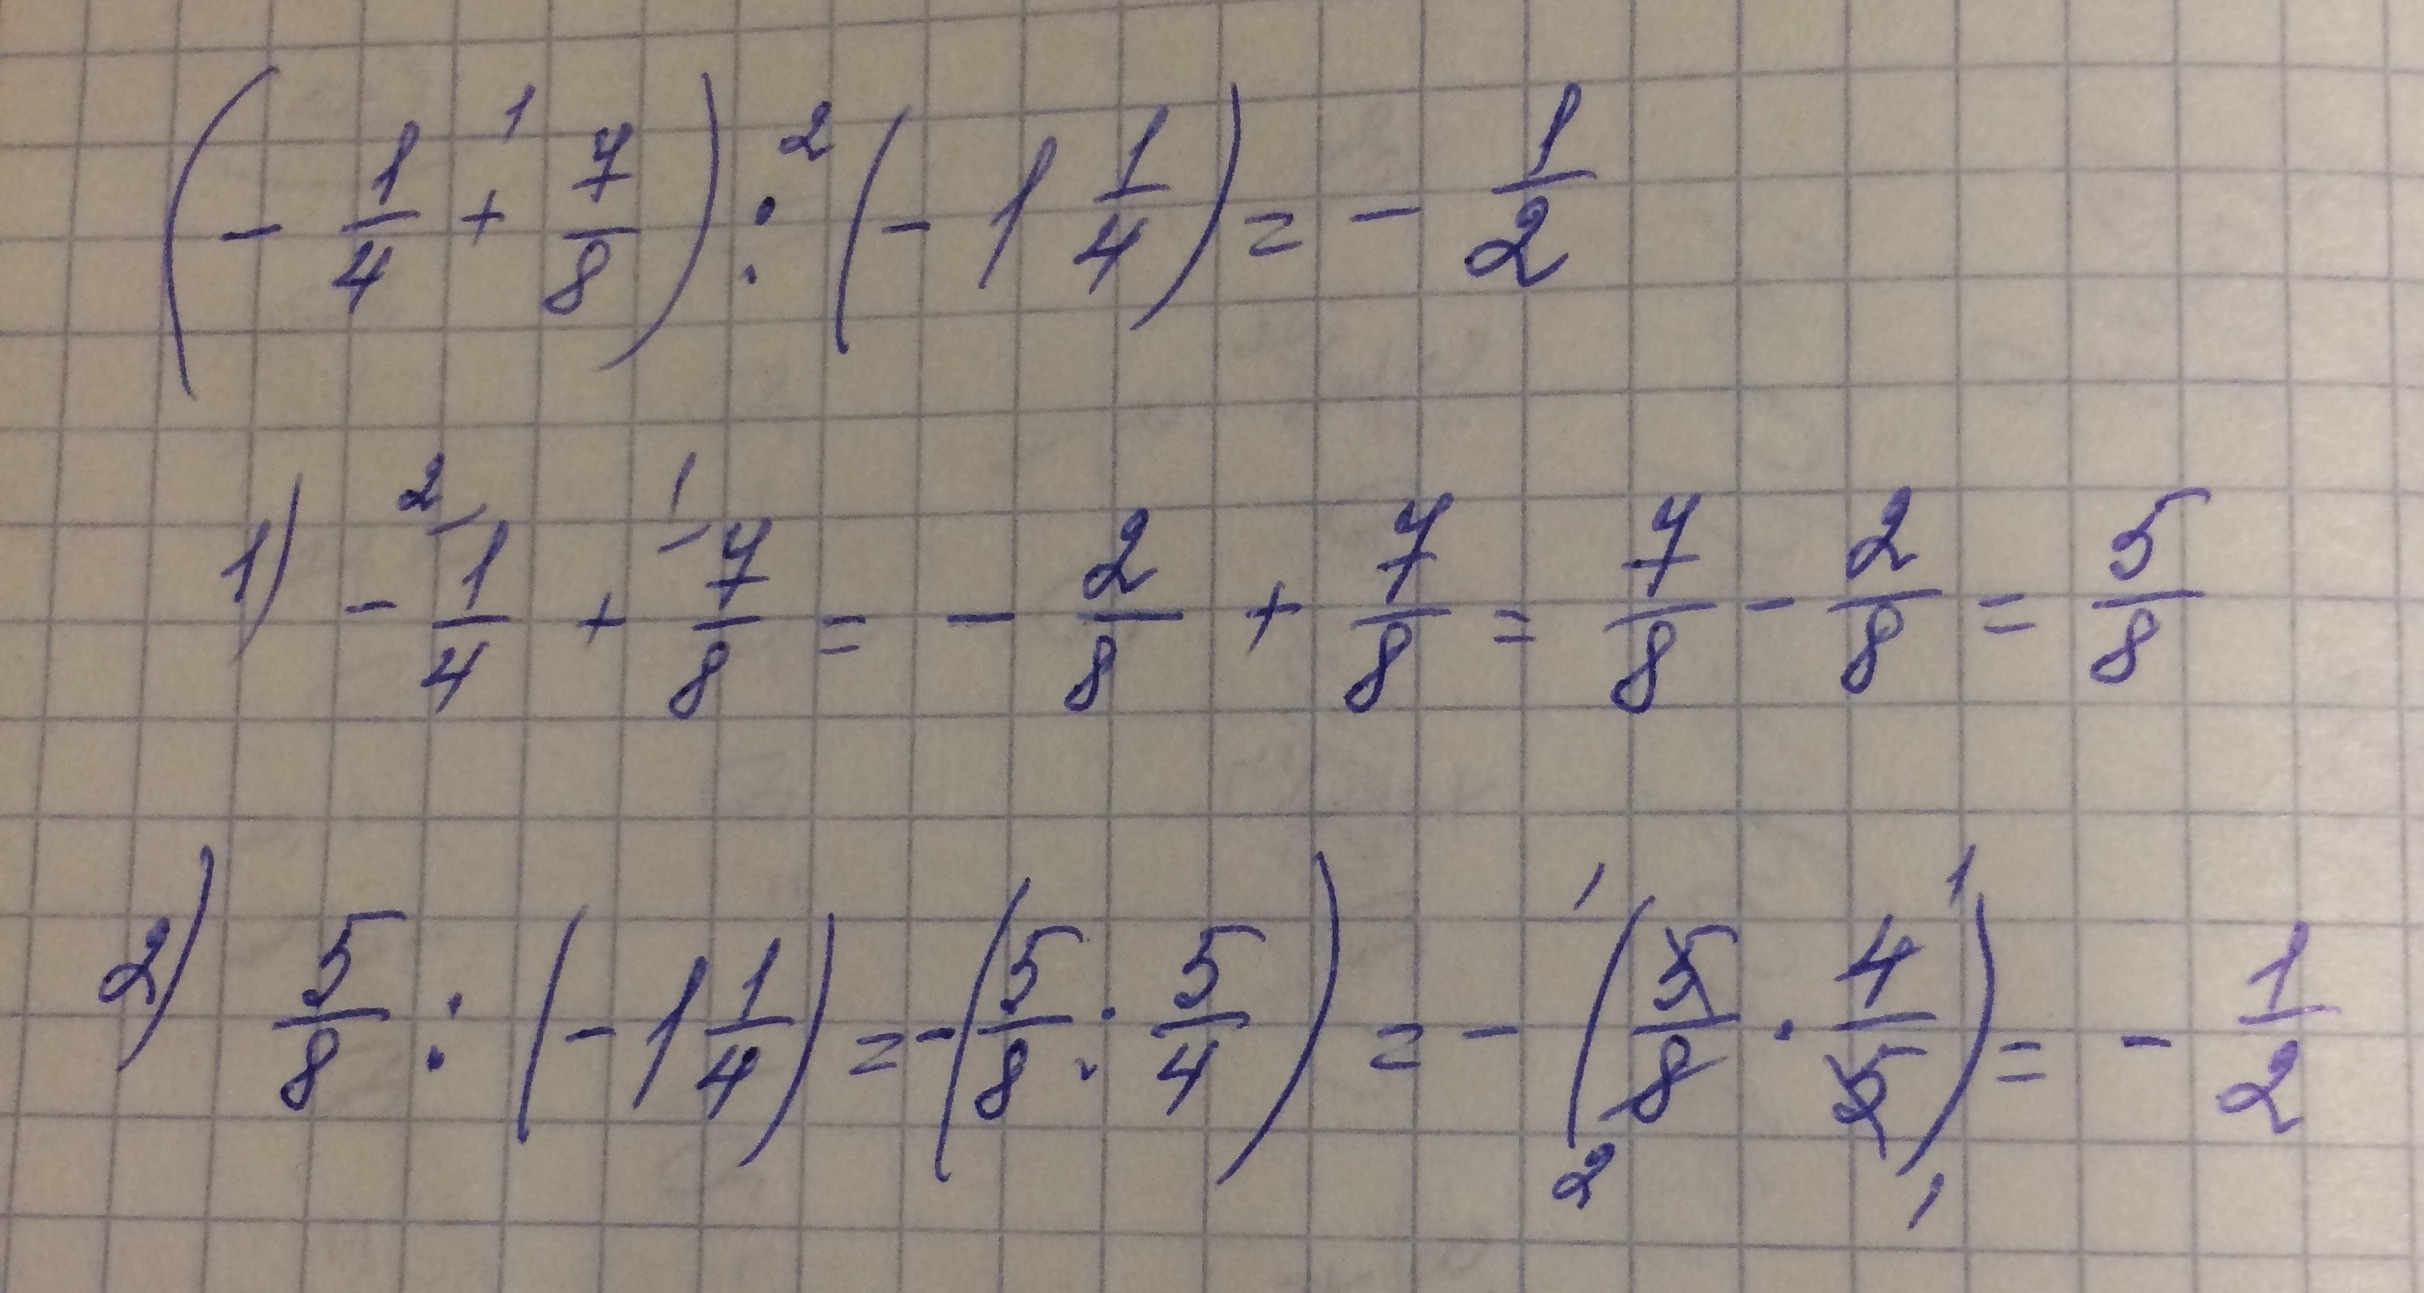 (- 1/4 + 7/8) : (- 1 1/4) = - 1/2
1) - 1/4 + 7/8 = - 2/8 + 7/8 = 7/8 - 2/8 = 5/8
2) 5/8 : (- 1 1/4) = - (5/8 : 5/4) = - (5/8 · 4/5) = - 1/2